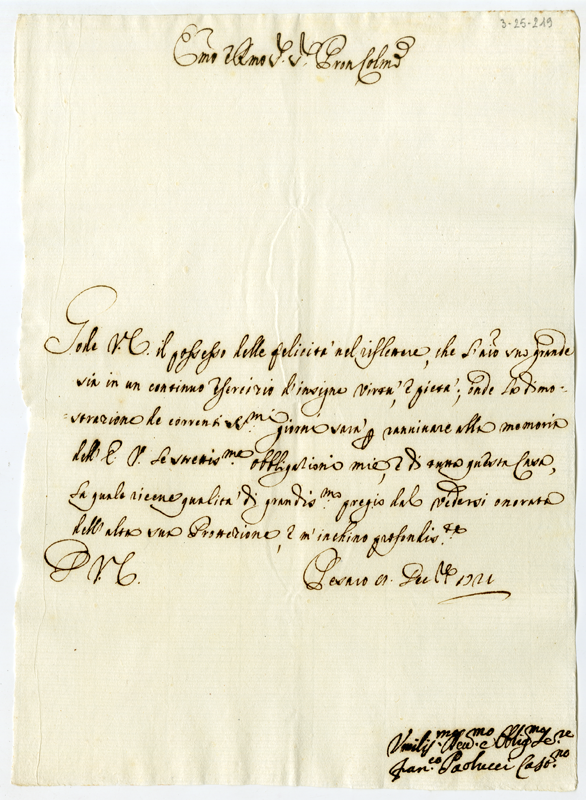 3-25-219
Emo e Rmo Sr. Sr. Pron Colmo
Gode V. E. il possesso delle felicità nel riflettere, che l'animo suo grande
sia in un continuo esercizio d'insigne virtù, e pietà; onde la dimo-
strazione de correnti SSmi giorni sarà p ravvivare alla memoria
dell'E. V. le strettisme obbligazioni mie, e di tutta questa Casa,
la quale riceve qualità di grandismo pregio dal vedersi onorata
dell'alta sua Protezione, e m'inchino profondiste
D V. E. Pesaro Decbre 1721
Umilismo Devmo e Obligmo Sere
Franco Paolucci